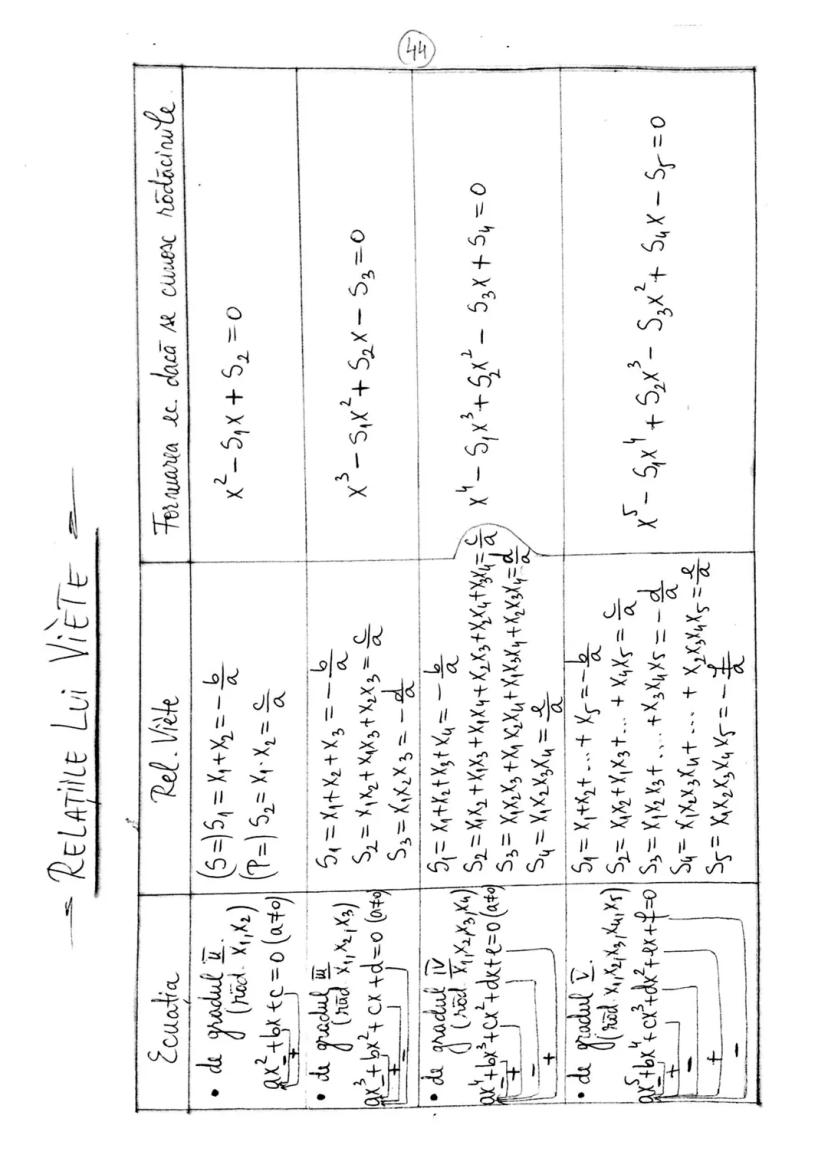 44
→ RELAȚIILE LUI VIÈTE =
Ecuația | Rel. Viète | Formarea ec. dacă se cunosc rădăcinile.
• de gradul II.
(răd. x₁,x₂)
ax²+bx+c=0 (a≠0)
-
+
(S=) S₁ = x₁+x₂ = -b/a
(P=) S₂ = x₁·x₂ = c/a
x² - S₁x + S₂ = 0
• de gradul III
(răd x₁,x₂,x₃)
ax³+bx²+cx+d=0 (a≠0)
-
+
-
S₁ = x₁+x₂+x₃ = -b/a
S₂ = x₁x₂+x₁x₃+x₂x₃ = c/a
S₃ = x₁x₂x₃ = -d/a
x³ - S₁x² + S₂x - S₃ = 0
• de gradul IV
(răd x₁,x₂,x₃,x₄)
ax⁴+bx³+cx²+dx+e=0 (a≠0)
-
+
-
+
S₁ = x₁+x₂+x₃+x₄ = -b/a
S₂ = x₁x₂+x₁x₃+x₁x₄+x₂x₃+x₂x₄+x₃x₄ = c/a
S₃ = x₁x₂x₃+x₁x₂x₄+x₁x₃x₄+x₂x₃x₄ = d/a
S₄ = x₁x₂x₃x₄ = e/a
x⁴ - S₁x³ + S₂x² - S₃x + S₄ = 0
• de gradul V.
(răd. x₁,x₂,x₃,x₄,x₅)
ax⁵+bx⁴+cx³+dx²+ex+f=0
-
+
-
+
-
S₁ = x₁+x₂+...+x₅ = -b/a
S₂ = x₁x₂+x₁x₃+...+x₄x₅ = c/a
S₃ = x₁x₂x₃+...+x₃x₄x₅ = -d/a
S₄ = x₁x₂x₃x₄+...+x₂x₃x₄x₅ = e/a
S₅ = x₁x₂x₃x₄x₅ = -f/a
x⁵ - S₁x⁴ + S₂x³ - S₃x² + S₄x - S₅ = 0